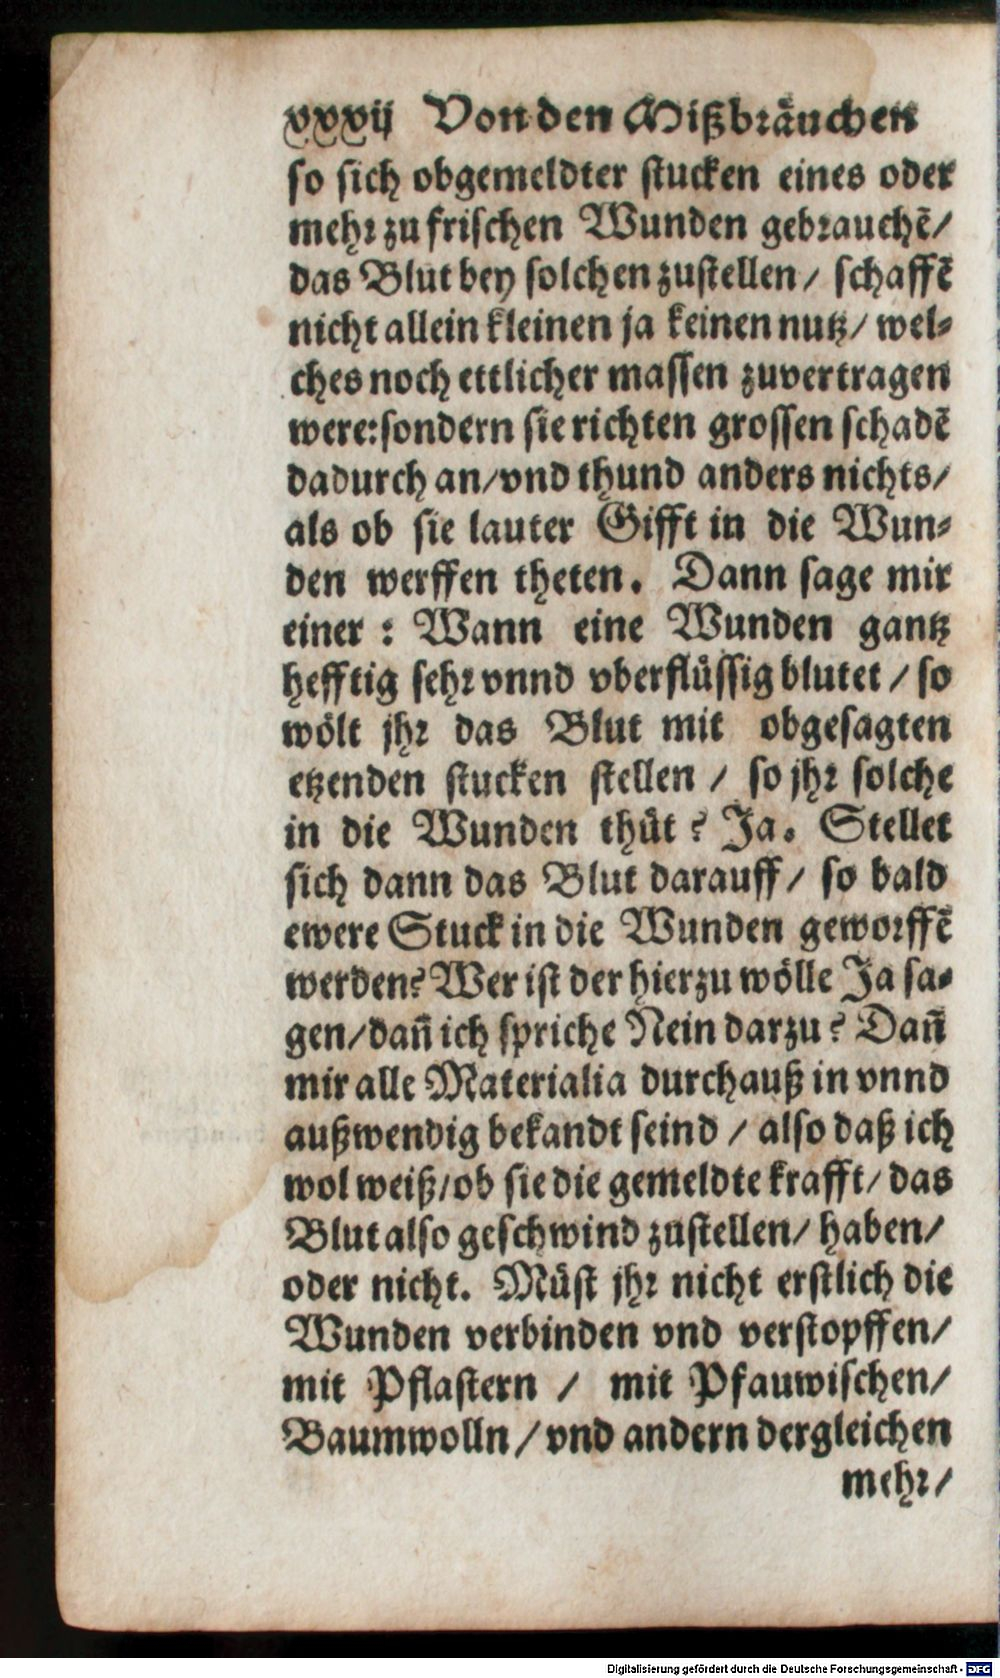 xxxij Von den Mißbräuchen
so sich obgemeldter stucken eines oder
mehr zu frischen Wunden gebrauchē/
das Blut bey solchen zustellen/ schaffē
nicht allein kleinen ja keinen nutz/ wel-
ches noch ettlicher massen zuvertragen
were: sondern sie richten grossen schadē
dadurch an/ vnd thund anders nichts/
als ob sie lauter Gifft in die Wun-
den werffen theten. Dann sage mir
einer : Wann eine Wunden gantz
hefftig sehr vnnd vberflüssig blutet / so
wölt jhr das Blut mit obgesagten
etzenden stucken stellen / so jhr solche
in die Wunden thüt? Ja. Stellet
sich dann das Blut darauff/ so bald
ewere Stuck in die Wunden geworffē
werden? Wer ist der hierzu wölle Ja sa-
gen/ dañ ich spriche Nein darzu? Dañ
mir alle Materialia durchauß in vnnd
außwendig bekandt seind / also daß ich
wol weiß/ ob sie die gemeldte krafft/ das
Blut also geschwind zustellen/ haben/
oder nicht. Müst jhr nicht erstlich die
Wunden verbinden vnd verstopffen/
mit Pflastern / mit Pfauwischen/
Baumwolln/ vnd andern dergleichen
mehr/
Digitalisierung gefördert durch die Deutsche Forschungsgemeinschaft - DFG